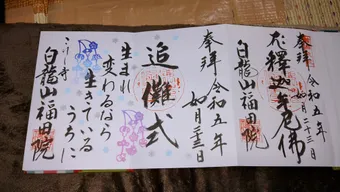 奉拝
令和五年
如月二十三日
大釋迦牟尼佛
白龍山福田院
奉拝
令和五年
如月二十三日
追儺式
生まれ
変わるなら
生きている
うちに
こけし寺
白龍山福田院